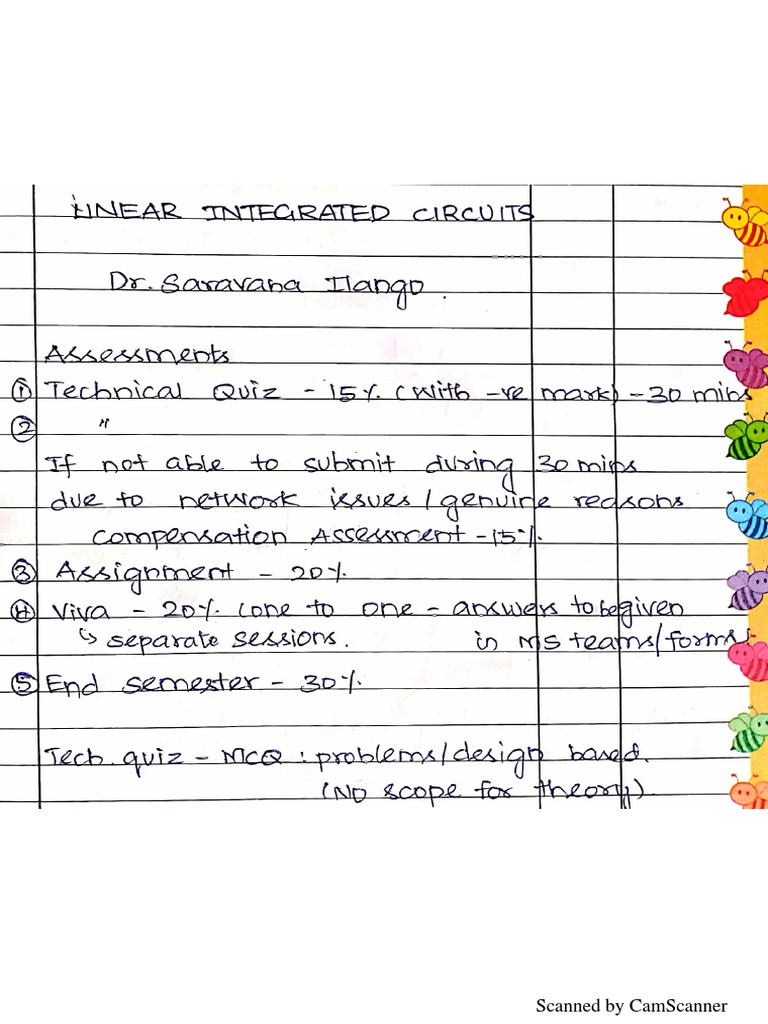 LINEAR INTEGRATED CIRCUITS
Dr. Saravana Ilango.
Assessments
① Technical Quiz - 15% (with -ve mark) - 30 mins
② "
If not able to submit during 30 mins
due to network issues / genuine reasons
compensation Assessment - 15%.
③ Assignment - 20%.
④ Viva - 20% (one to one - answers to be given
↳ separate sessions. in MS teams/forms
⑤ End semester - 30%.
Tech. quiz - MCQ : problems/design based.
(NO scope for theory)
Scanned by CamScanner